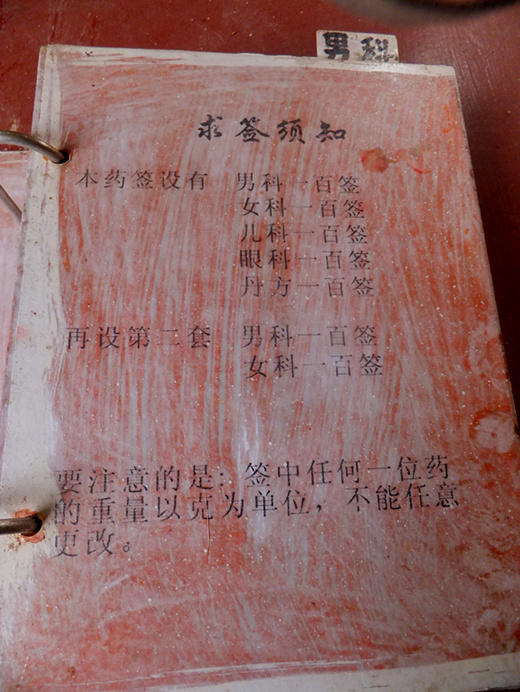 男科
求签须知
本药签设有 男科一百签
女科一百签
儿科一百签
眼科一百签
丹方一百签
再设第二套 男科一百签
女科一百签
要注意的是：签中任何一位药
的重量以克为单位，不能任意
更改。